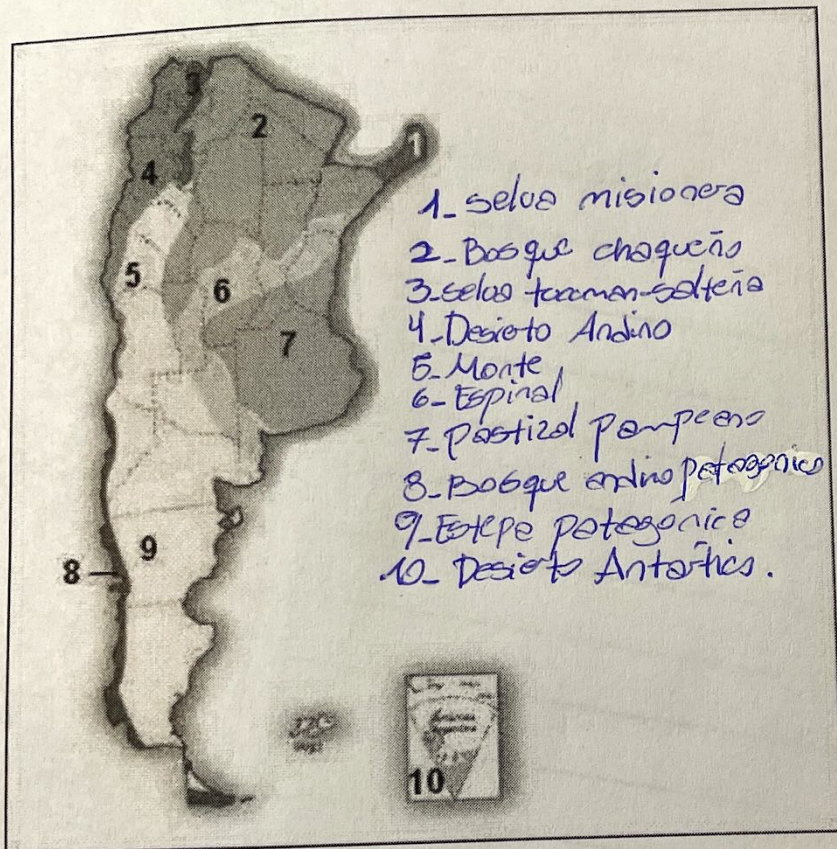 3
2
1
4
5
6
7
9
8
10
1_ Selva misionera
2_ Bosque chaqueño
3_ selva tucuman-salteña
4_ Desierto Andino
5_ Monte
6_ Espinal
7_ Pastizal Pampeano
8_ Bosque andino patagonico
9_ Estepa patagonica
10_ Desierto Antartico.